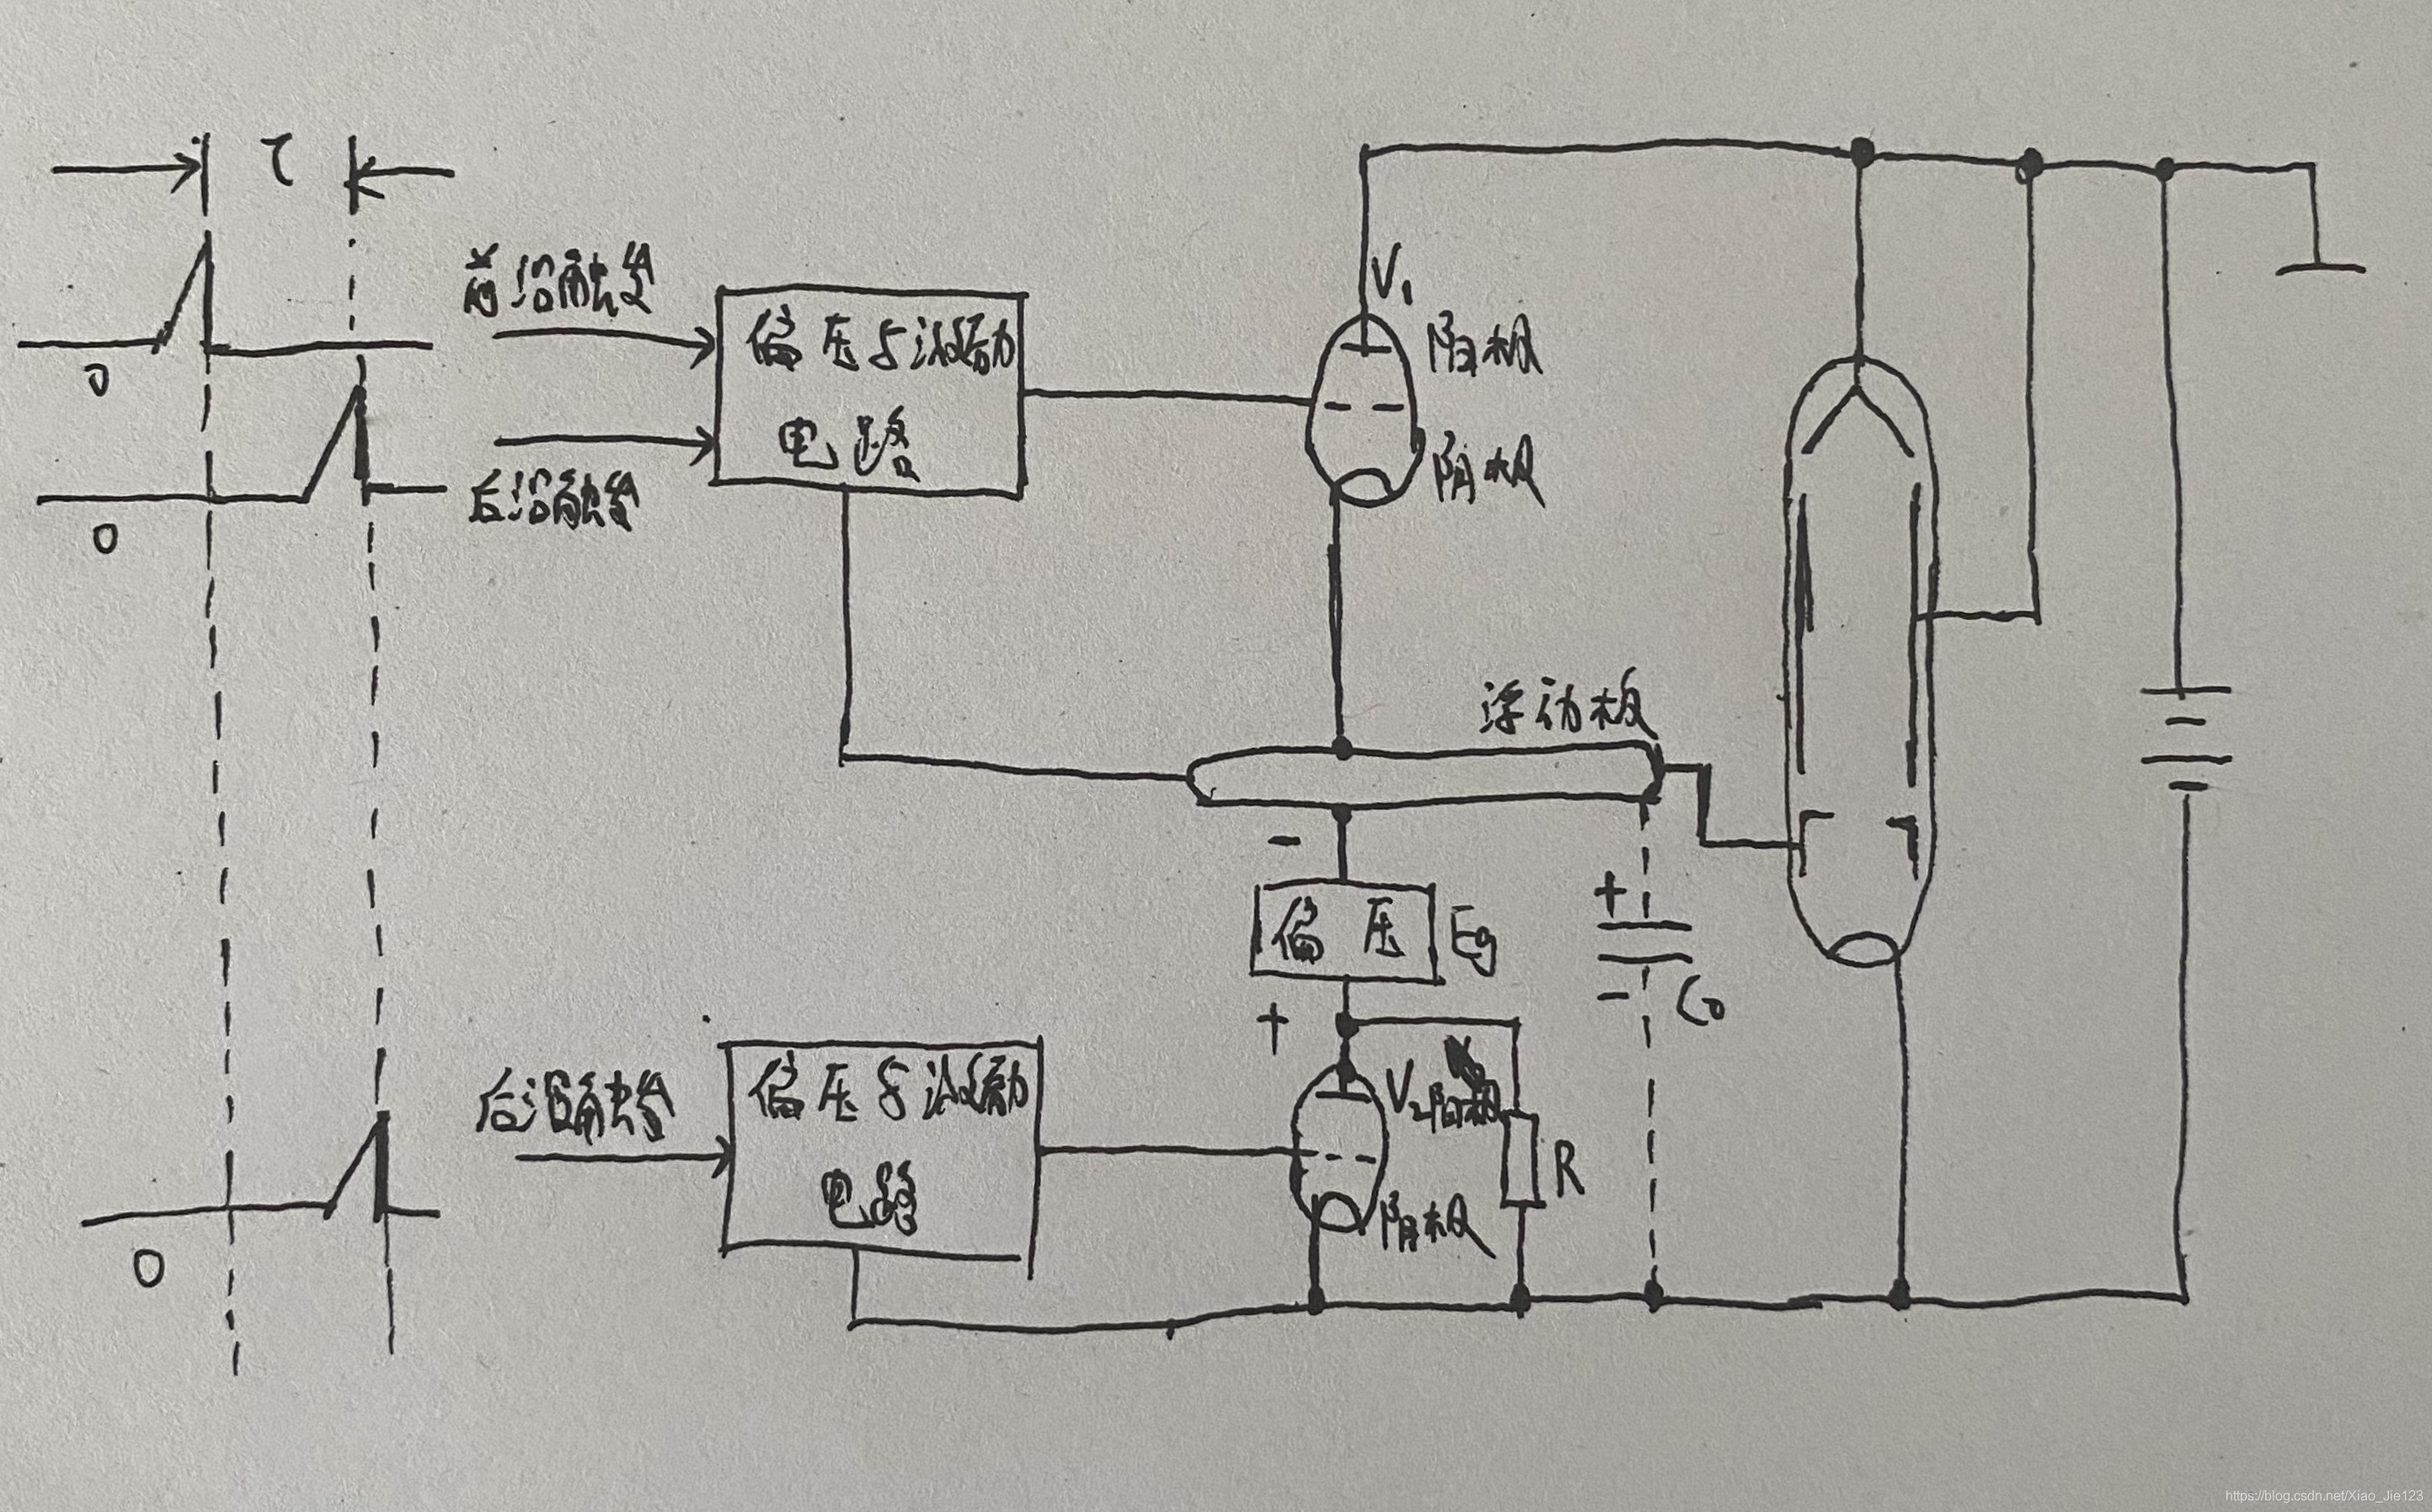 τ
前沿触发
0
偏压与激励
电路
V₁
阳极
阴极
后沿触发
0
浮动板
-
偏压
Eg
+
+
-
C₀
后沿触发
偏压与激励
电路
V₂阳极
R
阴极
0
https://blog.csdn.net/Xiao_Jie123